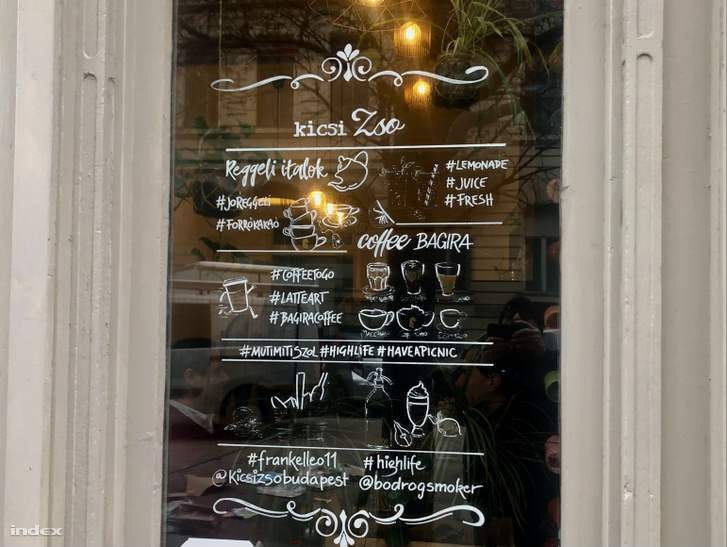 kicsi Zso
Reggeli italok
#LEMONADE
#JUICE
#FRESH
#JOREGGELI
#FORRÓKAKAÓ
coffee BAGIRA
#COFFEETOGO
#LATTEART
#BAGIRACOFFEE
#MUTIMITISZOL #HIGHLIFE #HAVEAPICNIC
#frankelleo11 #highlife
@Kicsizsobudapest @bodrogsmoker
index